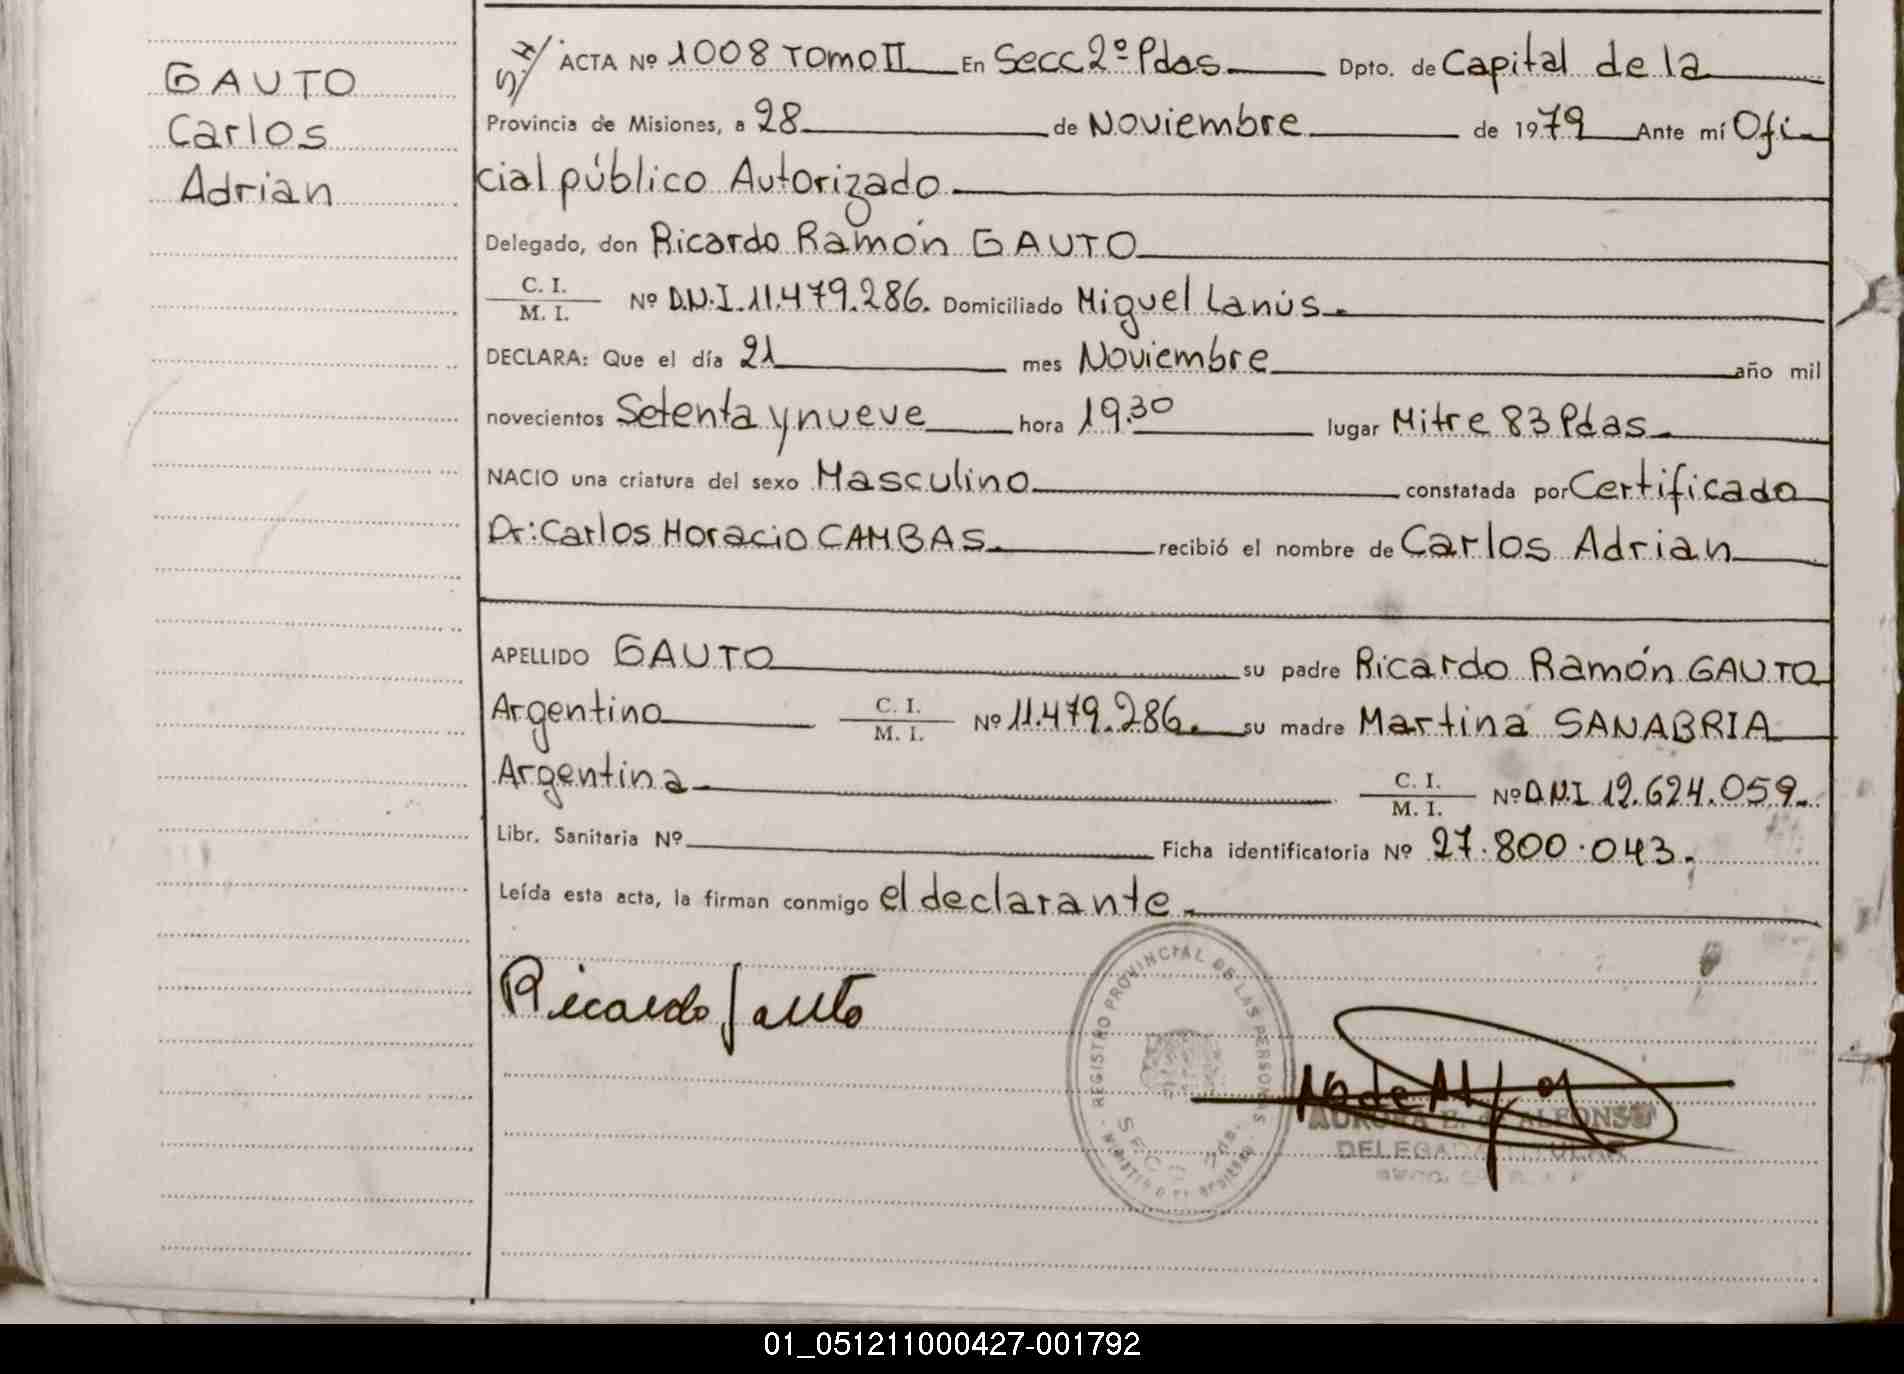 GAUTO
Carlos
Adrian
S.H/ ACTA Nº 1008 TOMO II En Secc 2º Pdas Dpto. de Capital de la
Provincia de Misiones, a 28 de Noviembre de 1979 Ante mí Ofi
cial público Autorizado
Delegado, don Ricardo Ramón GAUTO
C. I.
M. I. Nº D.N.I. 11.479.286. Domiciliado Miguel Lanús.
DECLARA: Que el día 21 mes Noviembre año mil
novecientos Setenta y nueve hora 19.30 lugar Mitre 83 Pdas.
NACIO una criatura del sexo Masculino constatada por Certificado
Dr: Carlos Horacio CAMBAS. recibió el nombre de Carlos Adrian
APELLIDO GAUTO su padre Ricardo Ramón GAUTO
Argentino C. I.
M. I. Nº 11.479.286. su madre Martina SANABRIA
Argentina C. I.
M. I. Nº D.N.I 12.624.059.
Libr. Sanitaria Nº Ficha identificatoria Nº 27.800.043.
Leída esta acta, la firman conmigo el declarante.
Ricardo Gauto
REGISTRO PROVINCIAL DE LAS PERSONAS
SECC 2da.
AURORA E. de ALFONSO
DELEGADA TITULAR
01_051211000427-001792